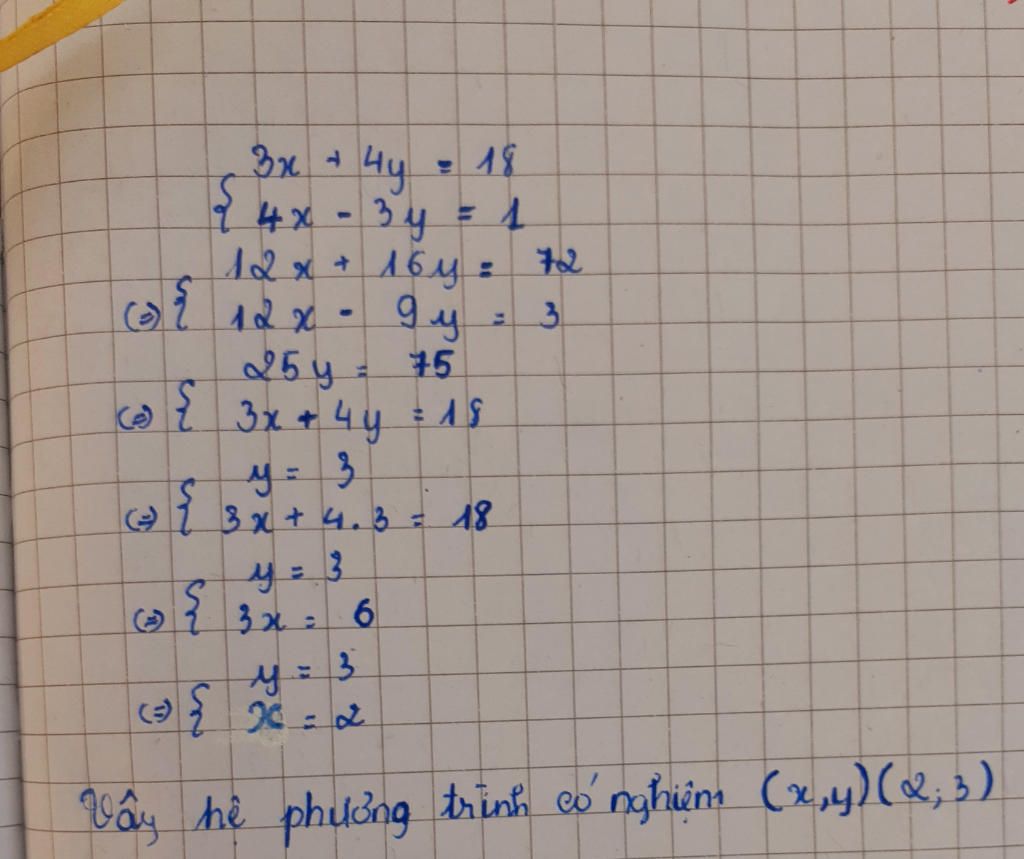 3x + 4y = 18
{ 4x - 3y = 1
12x + 16y = 72
(=) { 12x - 9y = 3
25y = 75
(=) { 3x + 4y = 18
y = 3
(=) { 3x + 4.3 = 18
y = 3
(=) { 3x = 6
y = 3
(=) { x = 2
Vậy hệ phương trình có nghiệm (x,y)(2;3)